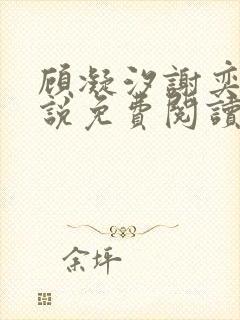 顾凝汐謝奕
説免費閱讀
余坪